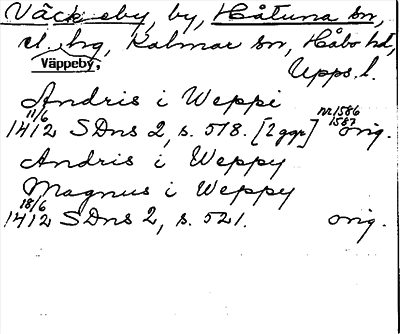 Väckeby, by, Håtuna sn,
el. hg, Kalmar sn, Håbo hd,
Väppeby, Upps. l.
Andris i Weppi
11/6 nr 1586
1412 SDns 2, s. 518. [2 ggr] 1587 orig.
Andris i Weppy
Magnus i Weppy
18/6
1412 SDns 2, s. 521. orig.